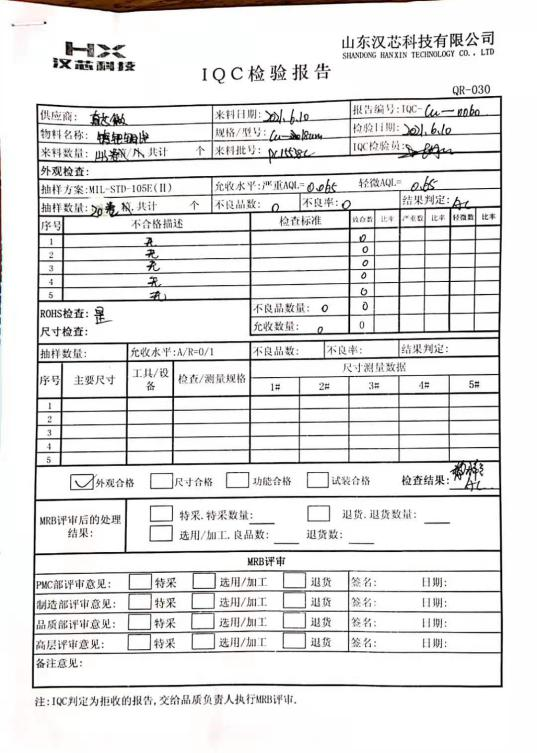 HX
汉芯科技
山东汉芯科技有限公司
SHANDONG HANXIN TECHNOLOGY CO., LTD
IQC检验报告
QR-030
供应商: 来料日期: 2021.6.10 报告编号:IQC-
物料名称: 规格/型号: 检验日期: 2021.6.10
来料数量: 共计 个 来料批号: IQC检验员:
外观检查:
抽样方案:MIL-STD-105E(II) 允收水平:严重AQL= 0.065 轻微AQL= 0.65
抽样数量: 20卷 共计 个 不良品数: 0 不良率: 0 结果判定: AC
序号 不合格描述 检查标准 致命数 比率 严重数 比率 轻微数 比率
1 无 0
2 无 0
3 无 0
4 无 0
5 无 0
ROHS检查: 是 不良品数量: 0 0
尺寸检查: 允收数量: 0 0
抽样数量: 允收水平:A/R=0/1 不良品数: 不良率: 结果判定:
序号 主要尺寸 工具/设备 检查/测量规格 尺寸测量数据
1# 2# 3# 4# 5#
1
2
3
4
5
外观合格 尺寸合格 功能合格 试装合格 检查结果: AC
MRB评审后的处理结果: 特采.特采数量: 退货.退货数量:
选用/加工.良品数: 退货数:
MRB评审
PMC部评审意见: 特采 选用/加工 退货 签名: 日期:
制造部评审意见: 特采 选用/加工 退货 签名: 日期:
品质部评审意见: 特采 选用/加工 退货 签名: 日期:
高层评审意见: 特采 选用/加工 退货 签名: 日期:
备注意见:
注:IQC判定为拒收的报告,交给品质负责人执行MRB评审.